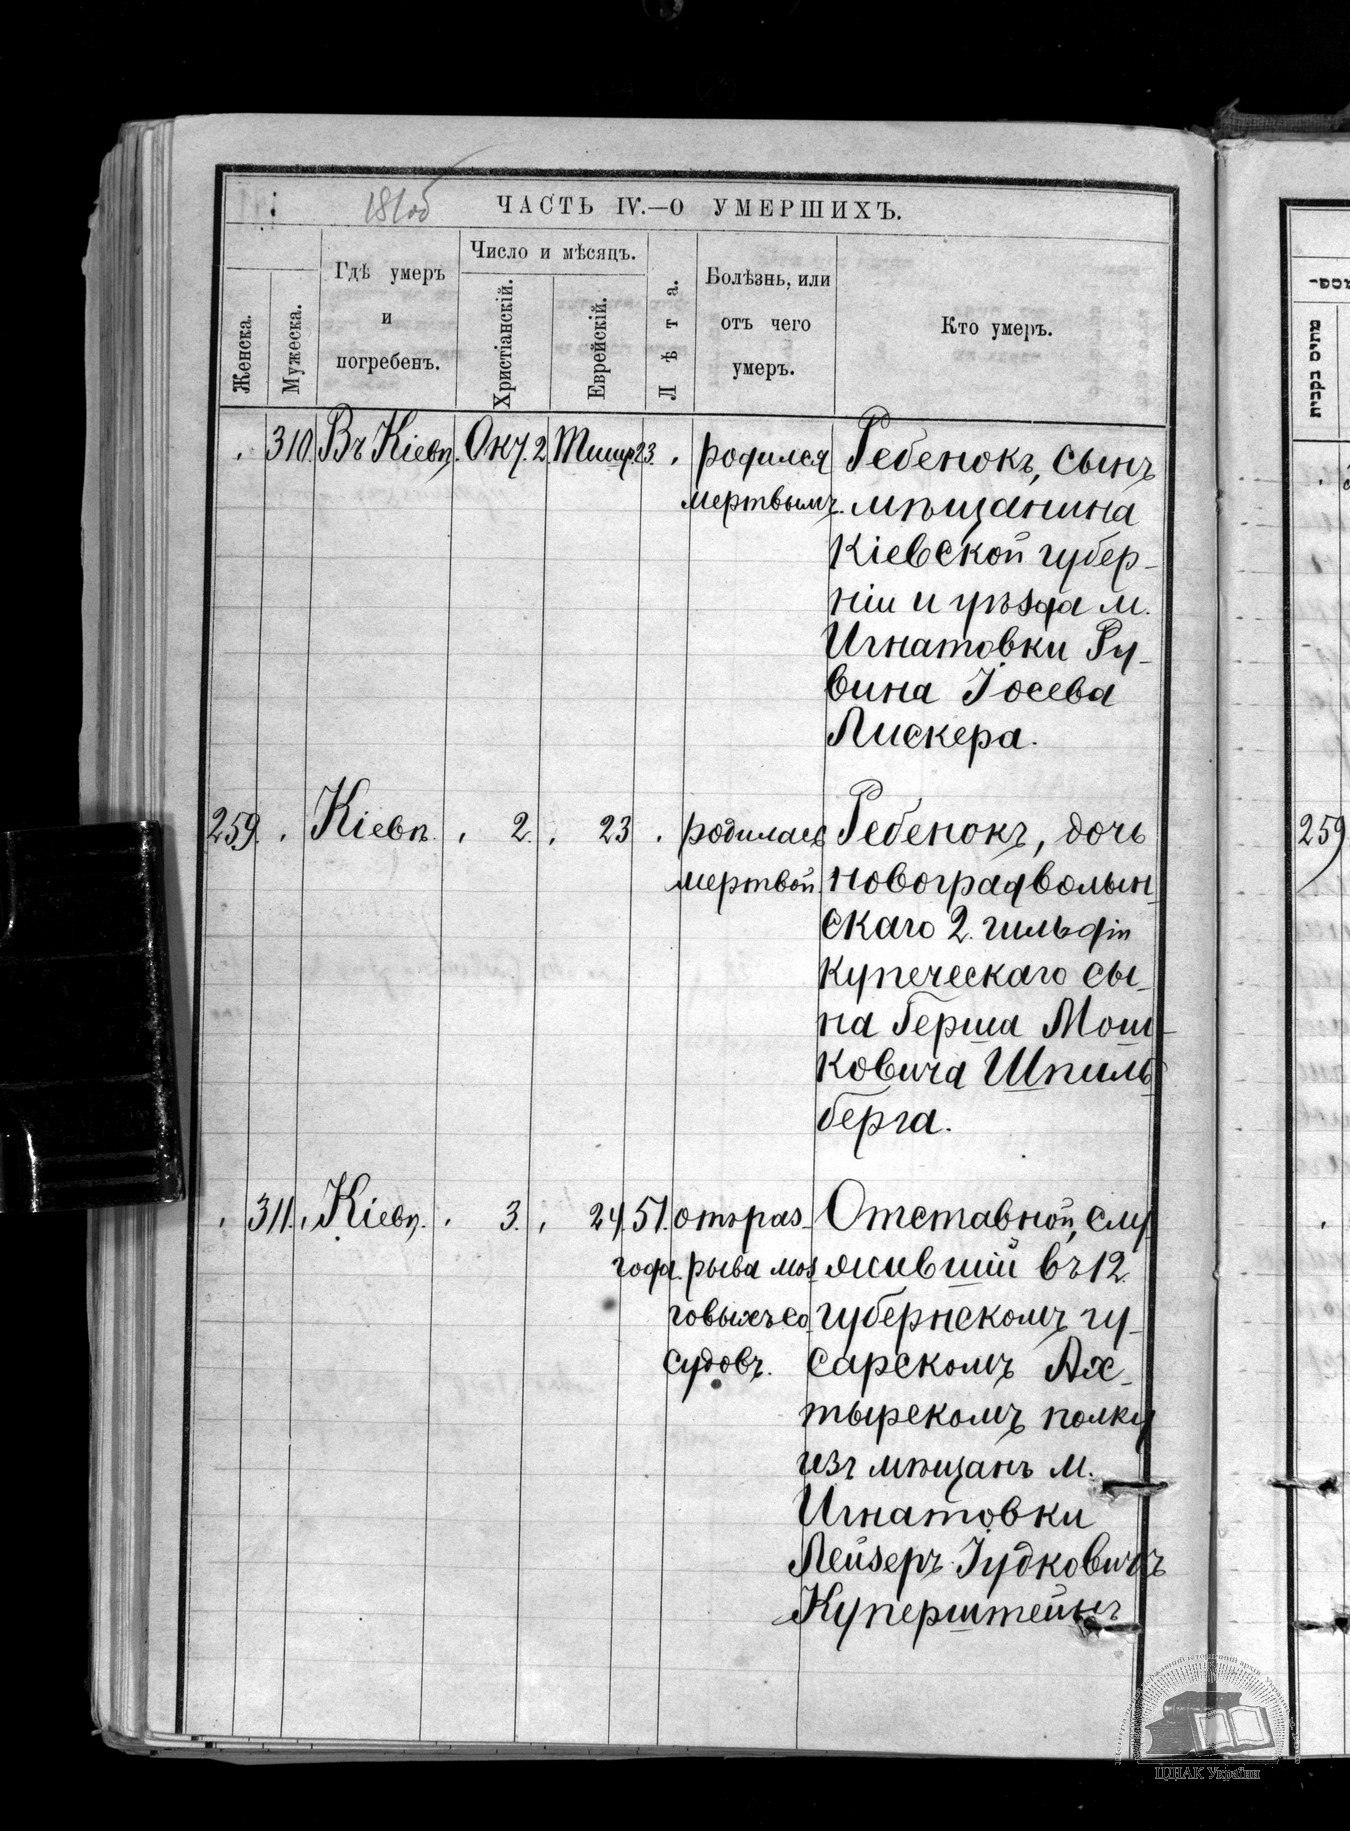 181об
ЧАСТЬ IV.—О УМЕРШИХЪ.
Женска.
Мужеска.
Гдѣ умеръ
и
погребенъ.
Число и мѣсяцъ.
Христіанскій.
Еврейскій.
Лѣта.
Болѣзнь, или
отъ чего
умеръ.
Кто умеръ.
310. Въ Кіевѣ. Окт. 2. Тишр. 23. родился Ребенокъ, сынъ
мертвымъ. мѣщанина
Кіевской губер-
ніи и уѣзда м.
Игнатовки Ру-
вина Іосева
Лискера.
259. Кіевѣ. 2. 23 родилась Ребенокъ, дочь
мертвой новоградволын-
скаго 2. гильдіи
купеческаго сы-
на Герша Мош-
ковича Шпиль-
берга.
311. Кіевѣ. 3. 24. 51. отъ раз- Отставной, слу-
года. рыва моз- жившій въ 12
говыхъ со- губернскомъ гу-
судовъ. сарскомъ Ах-
тырскомъ полку
изъ мѣщанъ м.
Игнатовки
Лейзеръ Іудковичъ
Куперштейнъ
259
ЦДІАК України